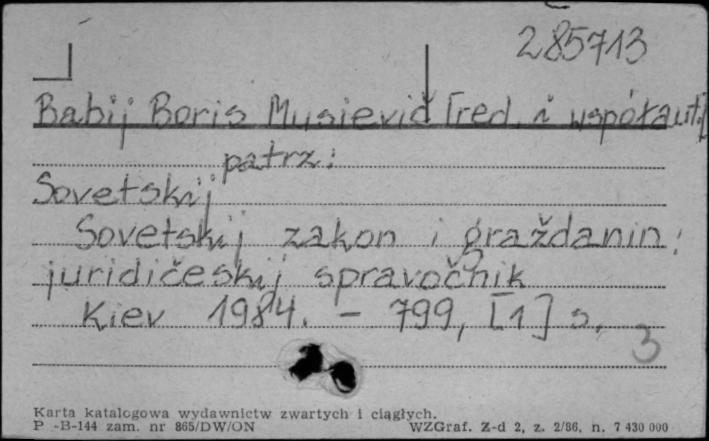 285713
Babij Boris Musievič [red. i współaut.]
patrz:
Sovetskij
Sovetskij zakon i graždanin:
juridičeskij spravočnik
Kiev 1984. - 799, [1] s.
3
Karta katalogowa wydawnictw zwartych i ciągłych.
P -B-144 zam. nr 865/DW/ON WZGraf. Z-d 2, z. 2/86, n. 7 430 000